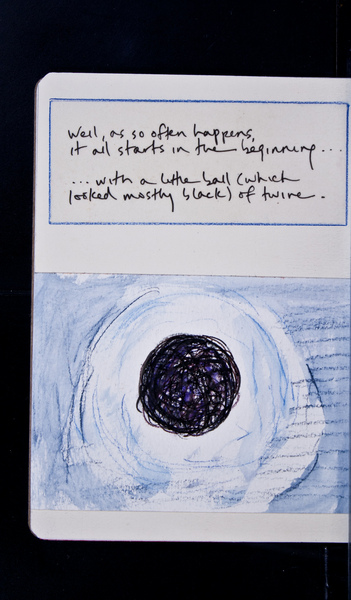 Well, as so often happens,
it all starts in the beginning...
... with a little ball (which
looked mostly black) of twine.